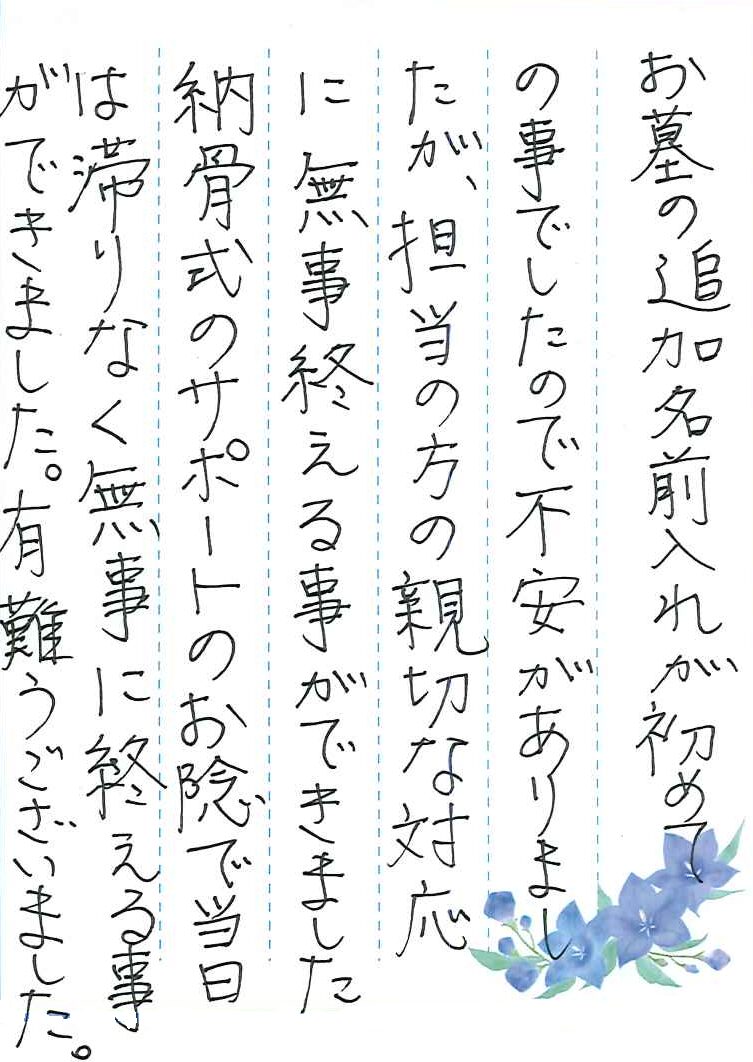 お墓の追加名前入れが初めて
の事でしたので不安がありまし
たが、担当の方の親切な対応
に無事終える事ができました
納骨式のサポートのお陰で当日
は滞りなく無事に終える事
ができました。有難うございました。